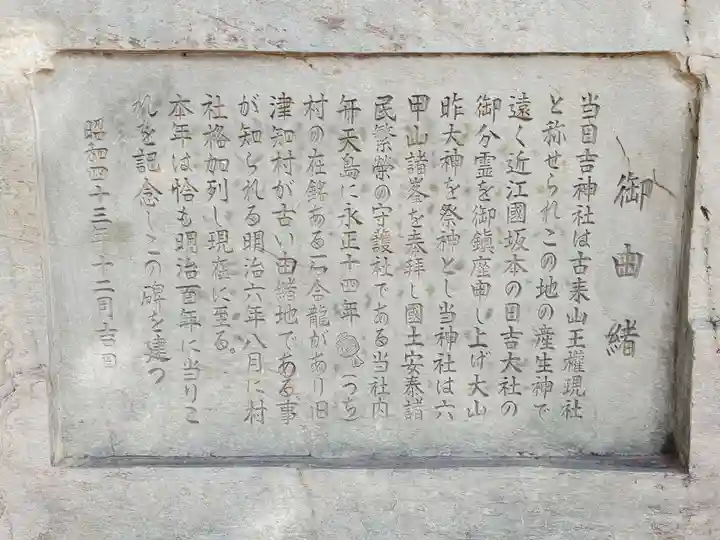 御由緒
当日吉神社は古来山王權現社
と称せられこの地の産生神で
遠く近江國坂本の日吉大社の
御分霊を御鎮座申し上げ大山
昨大神を祭神とし当神社は六
甲山諸峯を奉拜し國土安泰諸
民繁榮の守護社である当社内
弁天島に永正十四年 つち
村の在銘ある石 龍があり旧
津知村が古い由緒地である事
が知られる明治六年八月に村
社格加列し現在に至る。
本年は恰も明治百年に当りこ
れを記念しこの碑を建つ
昭和四十三年十二月吉日